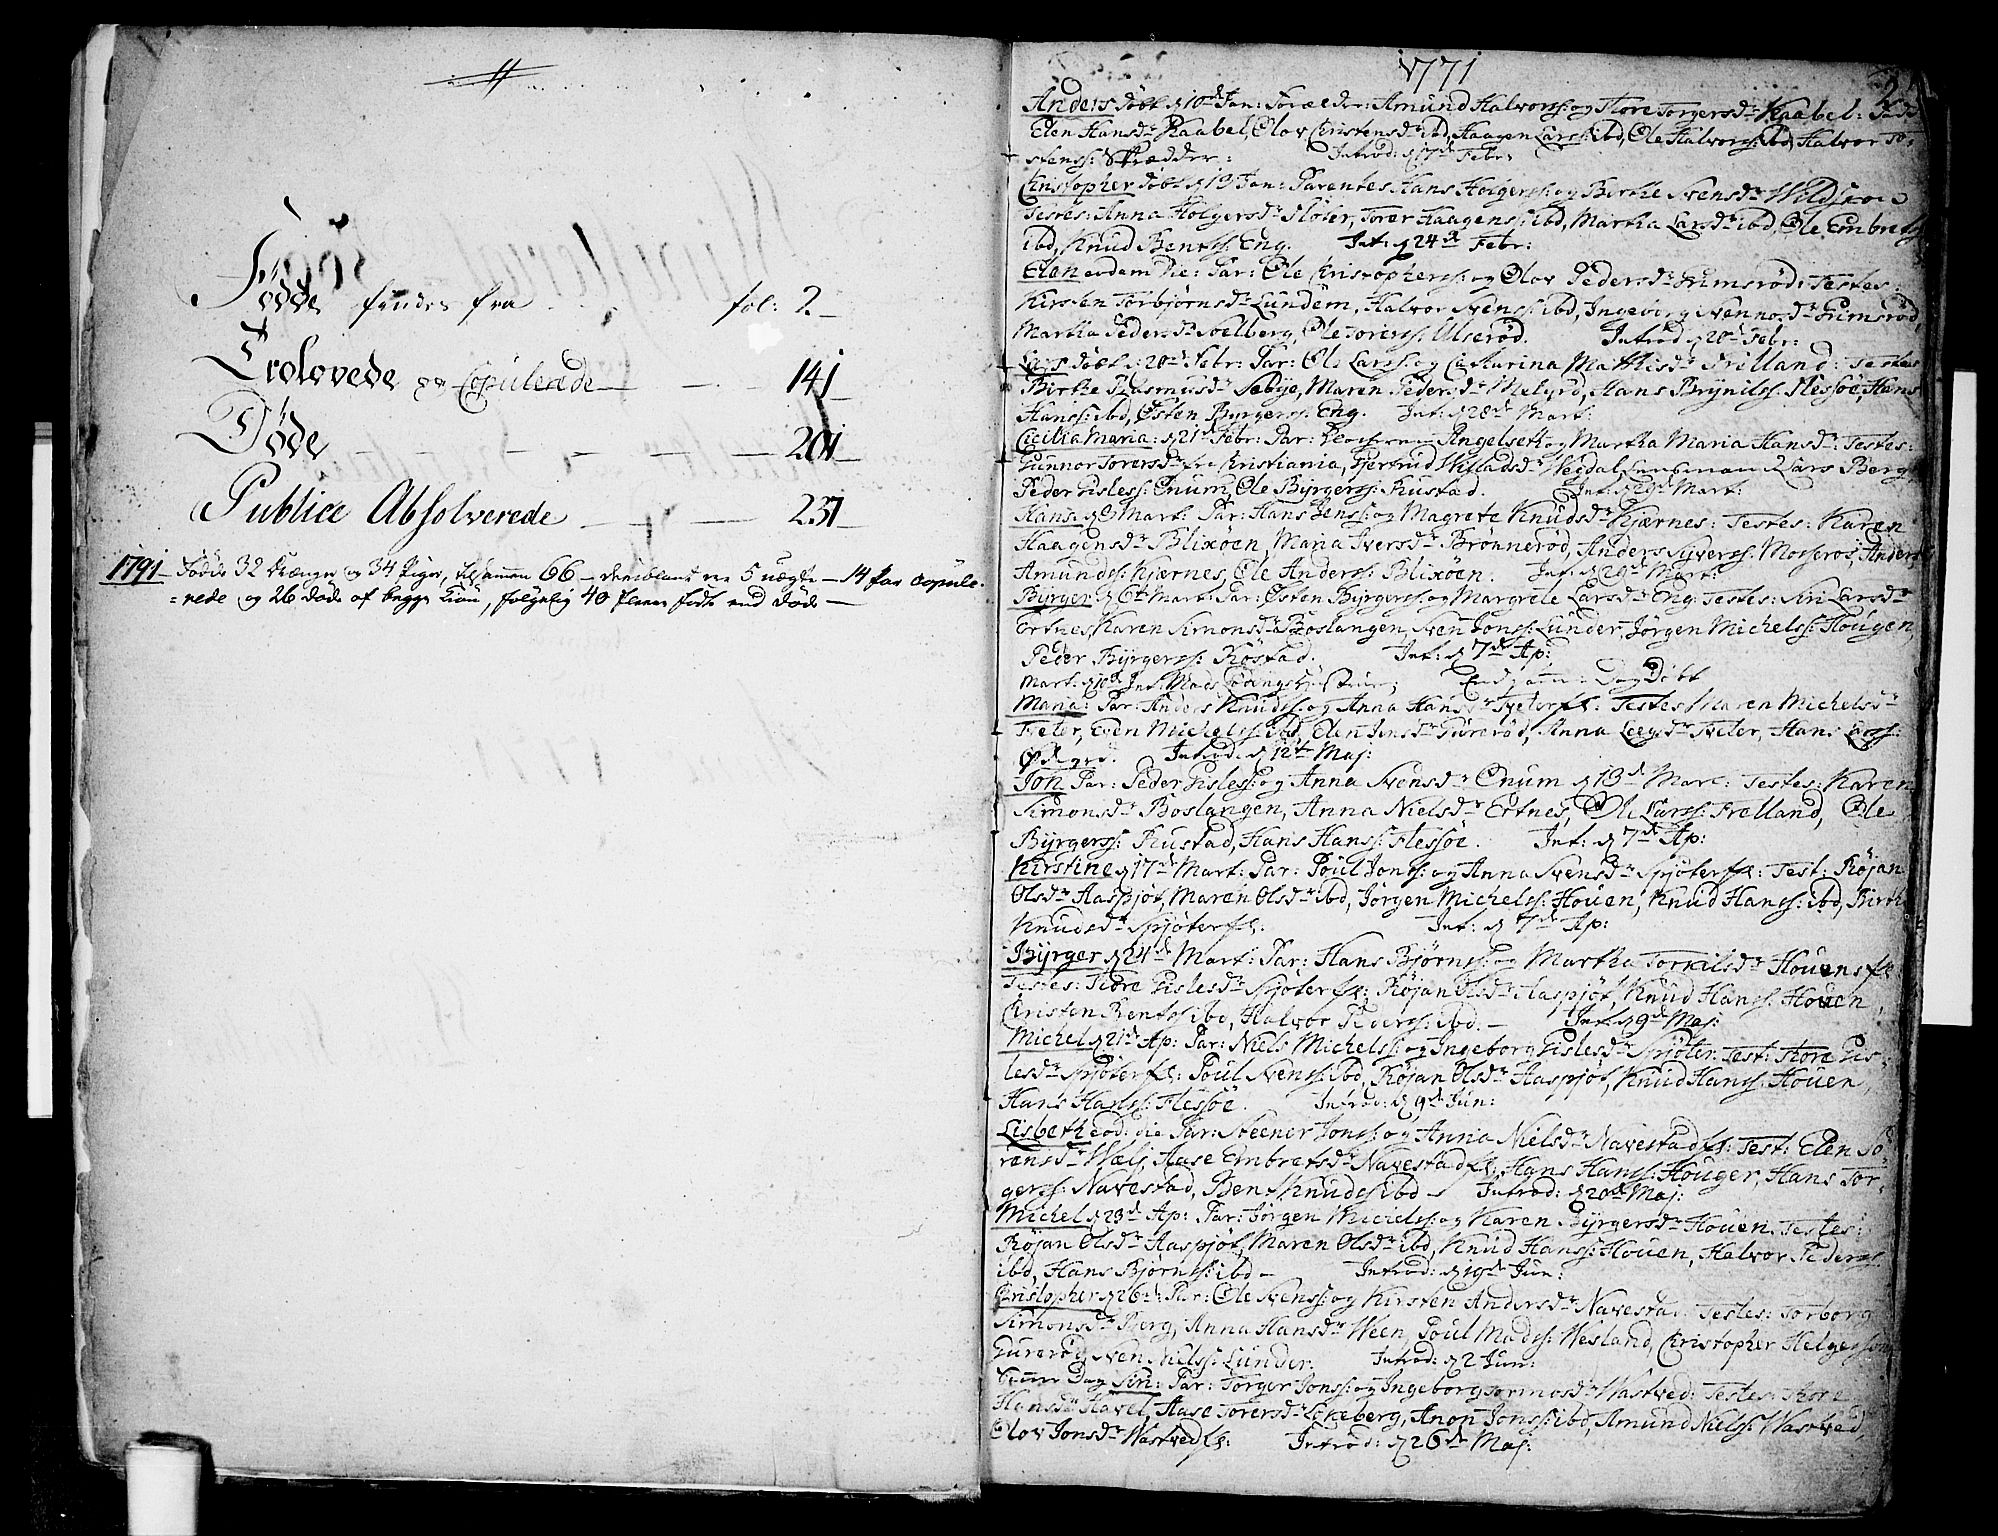 Fødde findes fra fol: 2
Trolovede og Copulerede 141
Døde 201
Publice Absolverede 231
1791 Fødde 32 Drænger og 34 Piger, tilsammen 66 – deriblant 5 uægte – 14 Par Copule-
=rede og 26 døde af begge Kiøn, følgelig 40 fleere født end døde –
1771
2
Anders døbt d 10de Jan: Forælder: Amund Halvorss: og Thore Torgersdr Kaabel: Fadd:
Elen Hansdr Kaabel, Olov Christensdr ibd, Haagen Larss: ibd, Ole Halvorss: ibd, Halvor To-
stenss: Skrædder: Introd: d 17de Febr:
Christopher døbt d 13 Jan: Parentes Hans Holgerss: og Birthe Svensdr
Testes: Anna Holgersdr Fløter, Torer Haagenss: ibd, Martha Larsdr ibd, Ole Embretss:
ibd, Knud Bentss: Eng. Int: d 24de Febr:
Elen eodem Die: Par: Ole Christopherss: og Olov Pedersdr Grimsrød: Testes:
Kirsten Torbjørnsdr Lundem, Halvor Svenss: ibd, Ingeborg Svennosdr Grimsrød,
Martha Pedersdr Soelberg, Ole Torerss: Ulserød. Introd d 20de Febr:
Lars døbt d 20de Febr: Par: Ole Larss: og Catharina Mathisdr Frelland: Testes
Birthe Rasmusdr Sæbye, Maren Pedersdr Melgrd, Hans Brynilss: Flessøe, Hans
Hanss: ibd, Østen Byrgerss: Eng. Int: d 28de Mart:
Cicilia Maria: d 21de Febr: Par: Angelseth og Martha Maria Hansdr: Testes:
Gunnor Torersdr fra Christiania, Gjertrud Willadsdr Wegdal, Lensman Lars Berg,
Peder Gisless: Onum, Ole Byrgerss: Rustad. Int: d 29de Mart:
Hans: d 3 Mart: Par: Hans Jenss: og Magrete Knudsdr Kjærnes: Testes: Karen
Haagensdr Blixøen, Maria Iversdr Brønnerød, Anders Syverss: Mosserøs, Anders
Amundss: Kjærnes, Ole Anderss: Blixøen. Int: d 29de Mart:
Byrger d 6te Mart: Par: Østen Byrgerss: og Margrete Larsdr Eng: Testes: Siri Larsdr
Ertnes, Karen Simonsdr Boslangen, Sven Jonss: Lunder, Jørgen Michelss: Hougen
Peder Byrgerss: Røstad. Int: d 7de Ap:
Mart: d 10de Int: Mads Hustrue; Dag Døbt
Maria: Par: Anders Knudss: og Anna Hansdr Tveterfl: Testes Maren Michelsdr
Tveter, Even Michelss: ibd, Elen Jensdr Gurerød, Anna Leegsdr Tveter, Hans Larss:
Ødegrd. Introd: d 12te Maj:
Jon Par: Peder Gisless: og Anna Svensdr Onum d 13de Mart: Testes: Karen
Simonsdr Boslangen, Anna Nielsdr Ertnes, Ole Larss: Frelland, Ole
Byrgerss: Rustad, Hans Hanss: Flessøe. Int: d 7de Ap:
Kirstine d 17de Mart: Par: Poul Jonss: og Anna Svensdr Spjøterfl: Test: Røjan
Olsdr Aaspjøt, Maren Olsdr ibd, Jørgen Michelss: Houen, Knud Hanss: ibd, Birthe
Knudsdr Spjøterfl: Int: d 7de Ap:
Byrger d 24de Mart: Par: Hans Bjørnss: og Martha Torkilsdr Houensfl
Testes: Thore Gislesdr Spjøterfl: Røjan Olsdr Aaspjøt, Knud Hanss: Houen,
Christen Bentss: ibd, Halvor Pederss: ibd. – Int: d 9de Maj:
Michel d 21de Ap: Par: Niels Michelss: og Ingeborg Gislesdr Spjøter: Test: Thore Gis-
lesdr Spjøterfl: Poul Svenss: ibd, Røjan Olsdr Aaspjøt, Knud Hanss: Houen,
Hans Hanss: Flessøe. Introd: d 9de Jun:
Lisbeth eod: die Par: Steener Jonss: og Anna Nielsdr Navestadfl: Test: Elen Sø-
rensdr Wæls, Aase Embretsdr Navestadfl: Hans Hanss: Houger, Hans Tor-
gerss: Navestad, Bent Knudss: ibd – Introd: d 20de Maj:
Michel d 23de Ap: Par: Jørgen Michelss: og Karen Byrgersdr Houen. Testes:
Røjan Olsdr Aaspjøt, Maren Olsdr ibd, Knud Hanss: Houen, Halvor Pederss:
ibd, Hans Bjørnss: ibd – Introd: d 19de Jun:
Christopher d 26de: Par: Ole Svenss: og Kirsten Andersdr Navestad. Testes: Torborg
Simonsdr Berg, Anna Hansdr Ween, Poul Madss: Wesland, Christopher Helgerss:
Gurerød, Sven Nielss: Lunder. Introd: d 2 Jun:
Samme Dag Siri: Par: Torger Jonss: og Ingeborg Tormosdr Wastved: Testes: Thore
Hansdr Havel, Aase Torersdr Likeberg, Anon Jonss: ibd, Amund Nielss: Wastved,
Olov Jonsdr Wastvedfl: Introd: d 26de Maj: